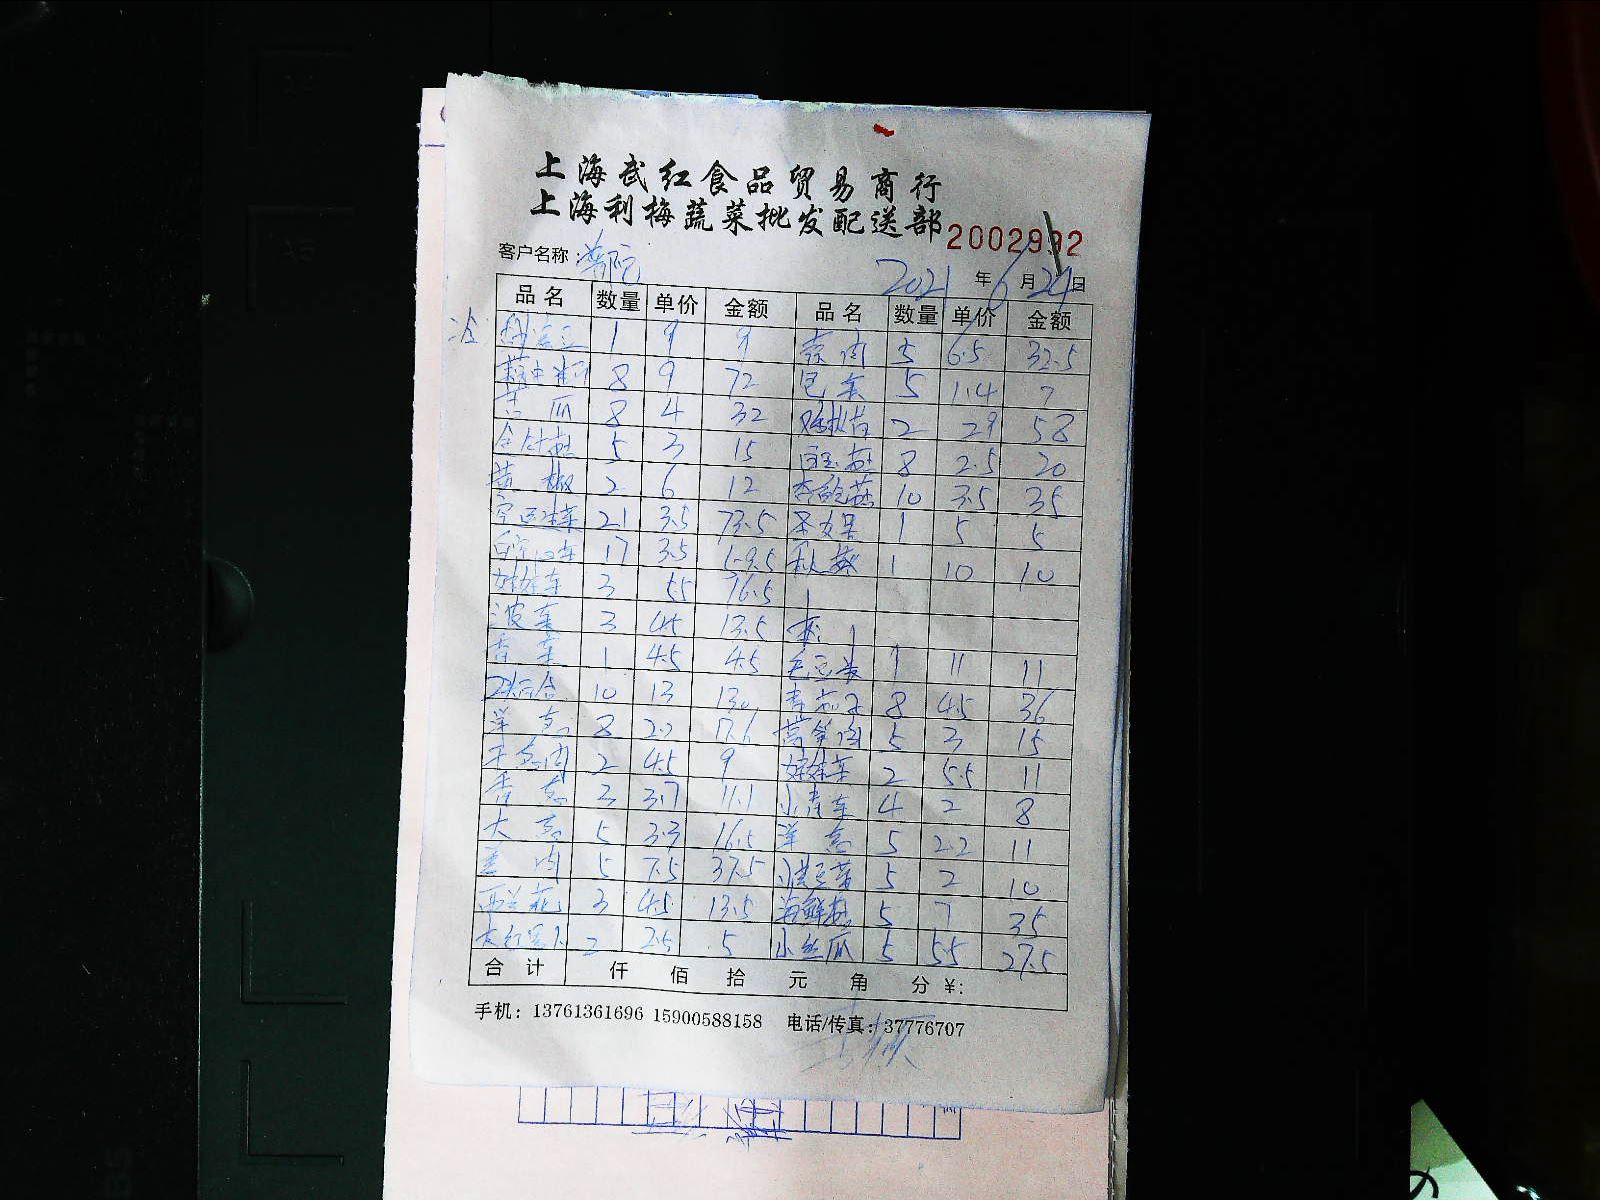 上海武红食品贸易商行
上海利梅蔬菜批发配送部 2002992
客户名称: 普陀 2021 年 6 月 24 日
品名 数量 单价 金额 品名 数量 单价 金额
1 9 9 蒜肉 5 6.5 32.5
8 9 72 包菜 5 1.4 7
苦瓜 8 4 32 2 29 58
金针菇 5 3 15 白玉菇 8 2.5 20
黄椒 2 6 12 杏鲍菇 10 3.5 35
21 3.5 73.5 1 5 5
白空心菜 17 3.5 59.5 1 10 10
娃娃菜 3 5.5 16.5
菠菜 3 4.5 13.5
香菜 1 4.5 4.5 1 11 11
10 13 130 青茄子 8 4.5 36
洋葱 8 2.2 17.6 莴笋肉 5 3 15
2 4.5 9 娃娃菜 2 5.5 11
香葱 3 3.7 11.1 小青菜 4 2 8
大葱 5 3.3 16.5 洋葱 5 2.2 11
姜肉 5 7.5 37.5 5 2 10
西兰花 3 4.5 13.5 海鲜菇 5 7 35
2 2.5 5 小丝瓜 5 5.5 27.5
合计 仟 佰 拾 元 角 分 ¥:
手机: 13761361696 15900588158 电话/传真: 37776707